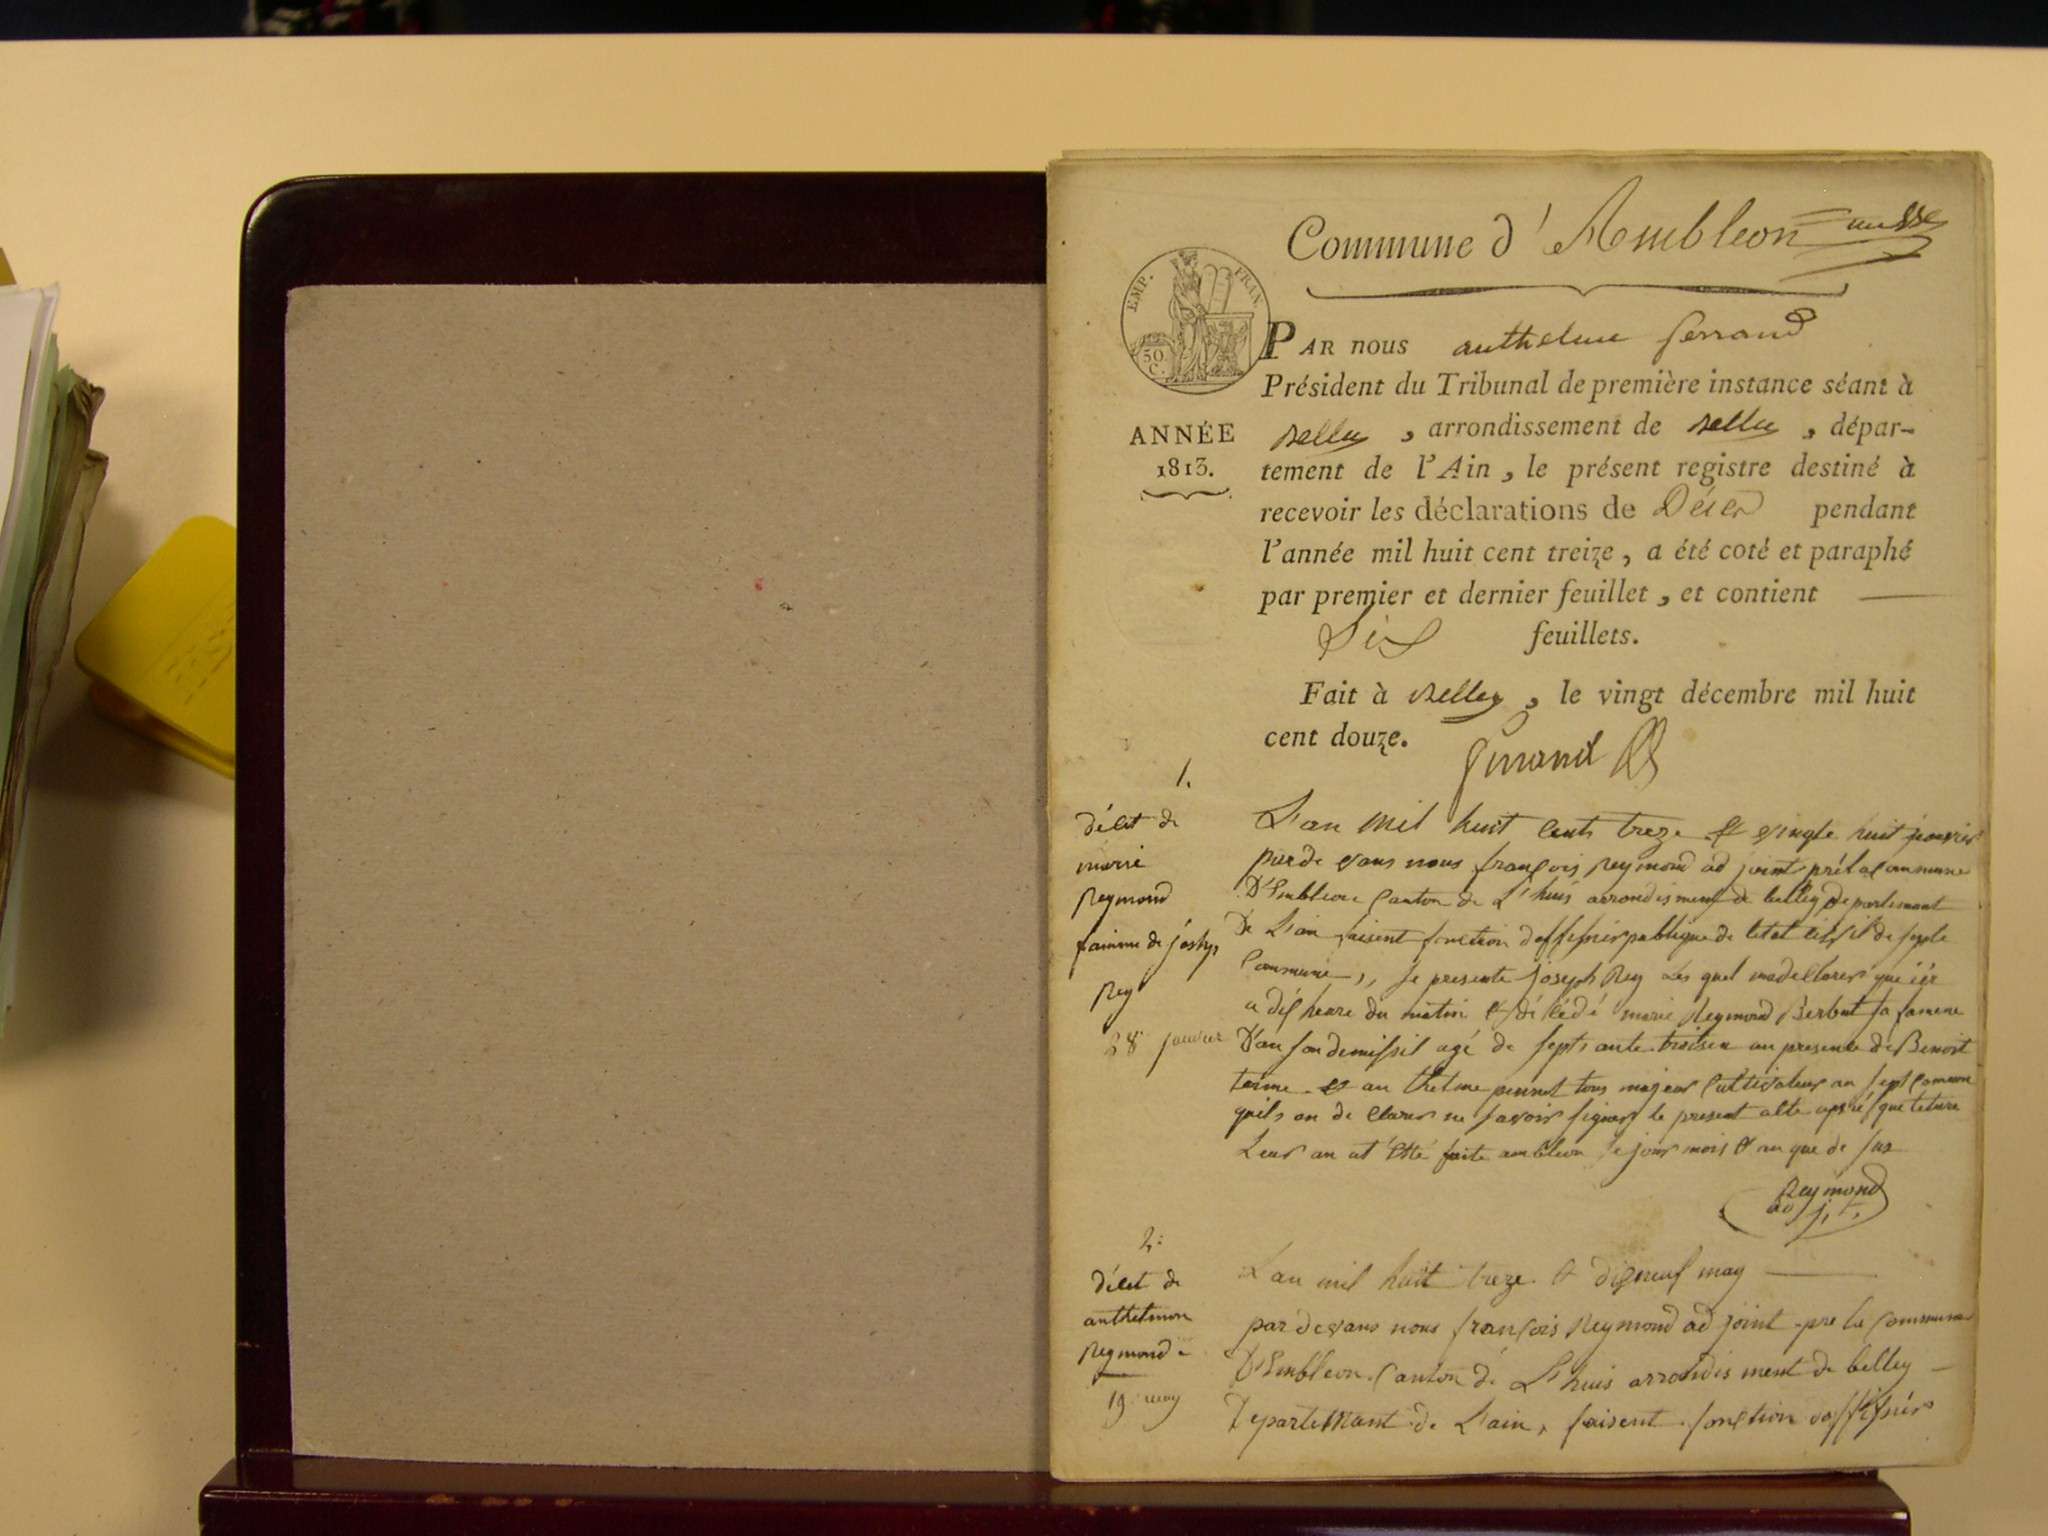 Commune d'Ambleon
EMP. FRAN.
30. C.
PAR nous anthelme ferrand
Président du Tribunal de première instance séant à
ANNÉE
1813.
Belley, arrondissement de Belley, dépar-
tement de l'Ain, le présent registre destiné à
recevoir les déclarations de Décès pendant
l'année mil huit cent treize, a été coté et paraphé
par premier et dernier feuillet, et contient
Six feuillets.
Fait à Belley, le vingt décembre mil huit
cent douze.
1.
décet de
marie
Reymond
famme de joseph
Rey
28 janvier
L'an mil huit cents treze & vingte huit janvier
par de vans nous françois Reymond ad joint pré la commune
D'Embleon Canton de L'huis arrondisment de belley departemant
De L'ain faisent fonction doffisier publique de letat sivil de
Commune, se presente joseph Rey Les quel ma declarer que ier
a dix heure du matin & désédé marie Reymond Berbut sa famme
D'an son demissil agé de septante troisen an presence de Benoit
terme & an thelme pennet tous majeur Cultivateur an
quils on de clarer ne savoir signer le present acte aprés que leture
Leur an at été faite ambleon le jour mois & an que de sus
Reymond
ad jt.
2:
décet de
anthelmon
Reymond
19 may
L'an mil huit treze & dixneuf may
par devans nous françois Reymond ad joint pre la Commune
D'Embleon Canton de L'huis arrondis ment de belley
Departemant de L'ain, faisent fonction doffisier